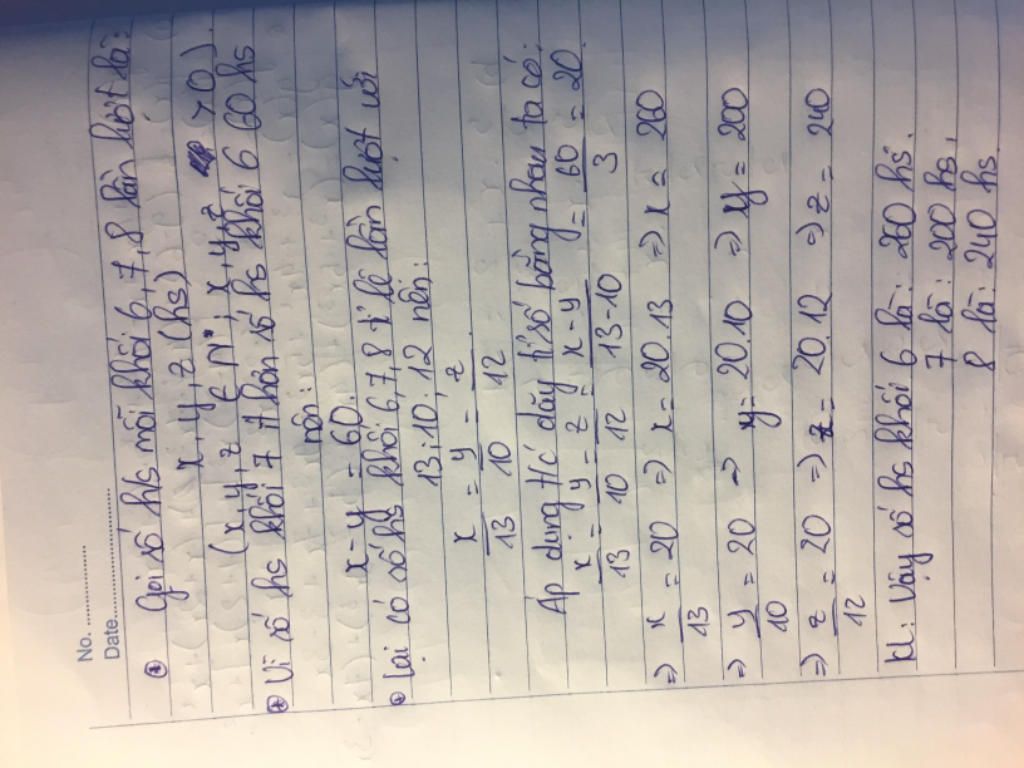 No. ..............
Date..............
Gọi số h/s mỗi khối 6, 7, 8 lần lượt là:
x, y, z (hs)
(x, y, z ∈ N*; x, y, z > 0).
Vì số hs khối 7 ít hơn số hs khối 6 60 hs
nên:
x - y = 60.
Lại có số hs khối 6, 7, 8 tỉ lệ lần lượt với
13; 10; 12 nên:
x/13 = y/10 = z/12.
Áp dụng t/c dãy tỉ số bằng nhau ta có:
x/13 = y/10 = z/12 = x-y/13-10 = 60/3 = 20.
=> x/13 = 20 => x = 20.13 => x = 260
=> y/10 = 20 => y = 20.10 => y = 200
=> z/12 = 20 => z = 20.12 => z = 240
Kl: Vậy số hs khối 6 là: 260 hs.
7 là: 200 hs.
8 là: 240 hs.